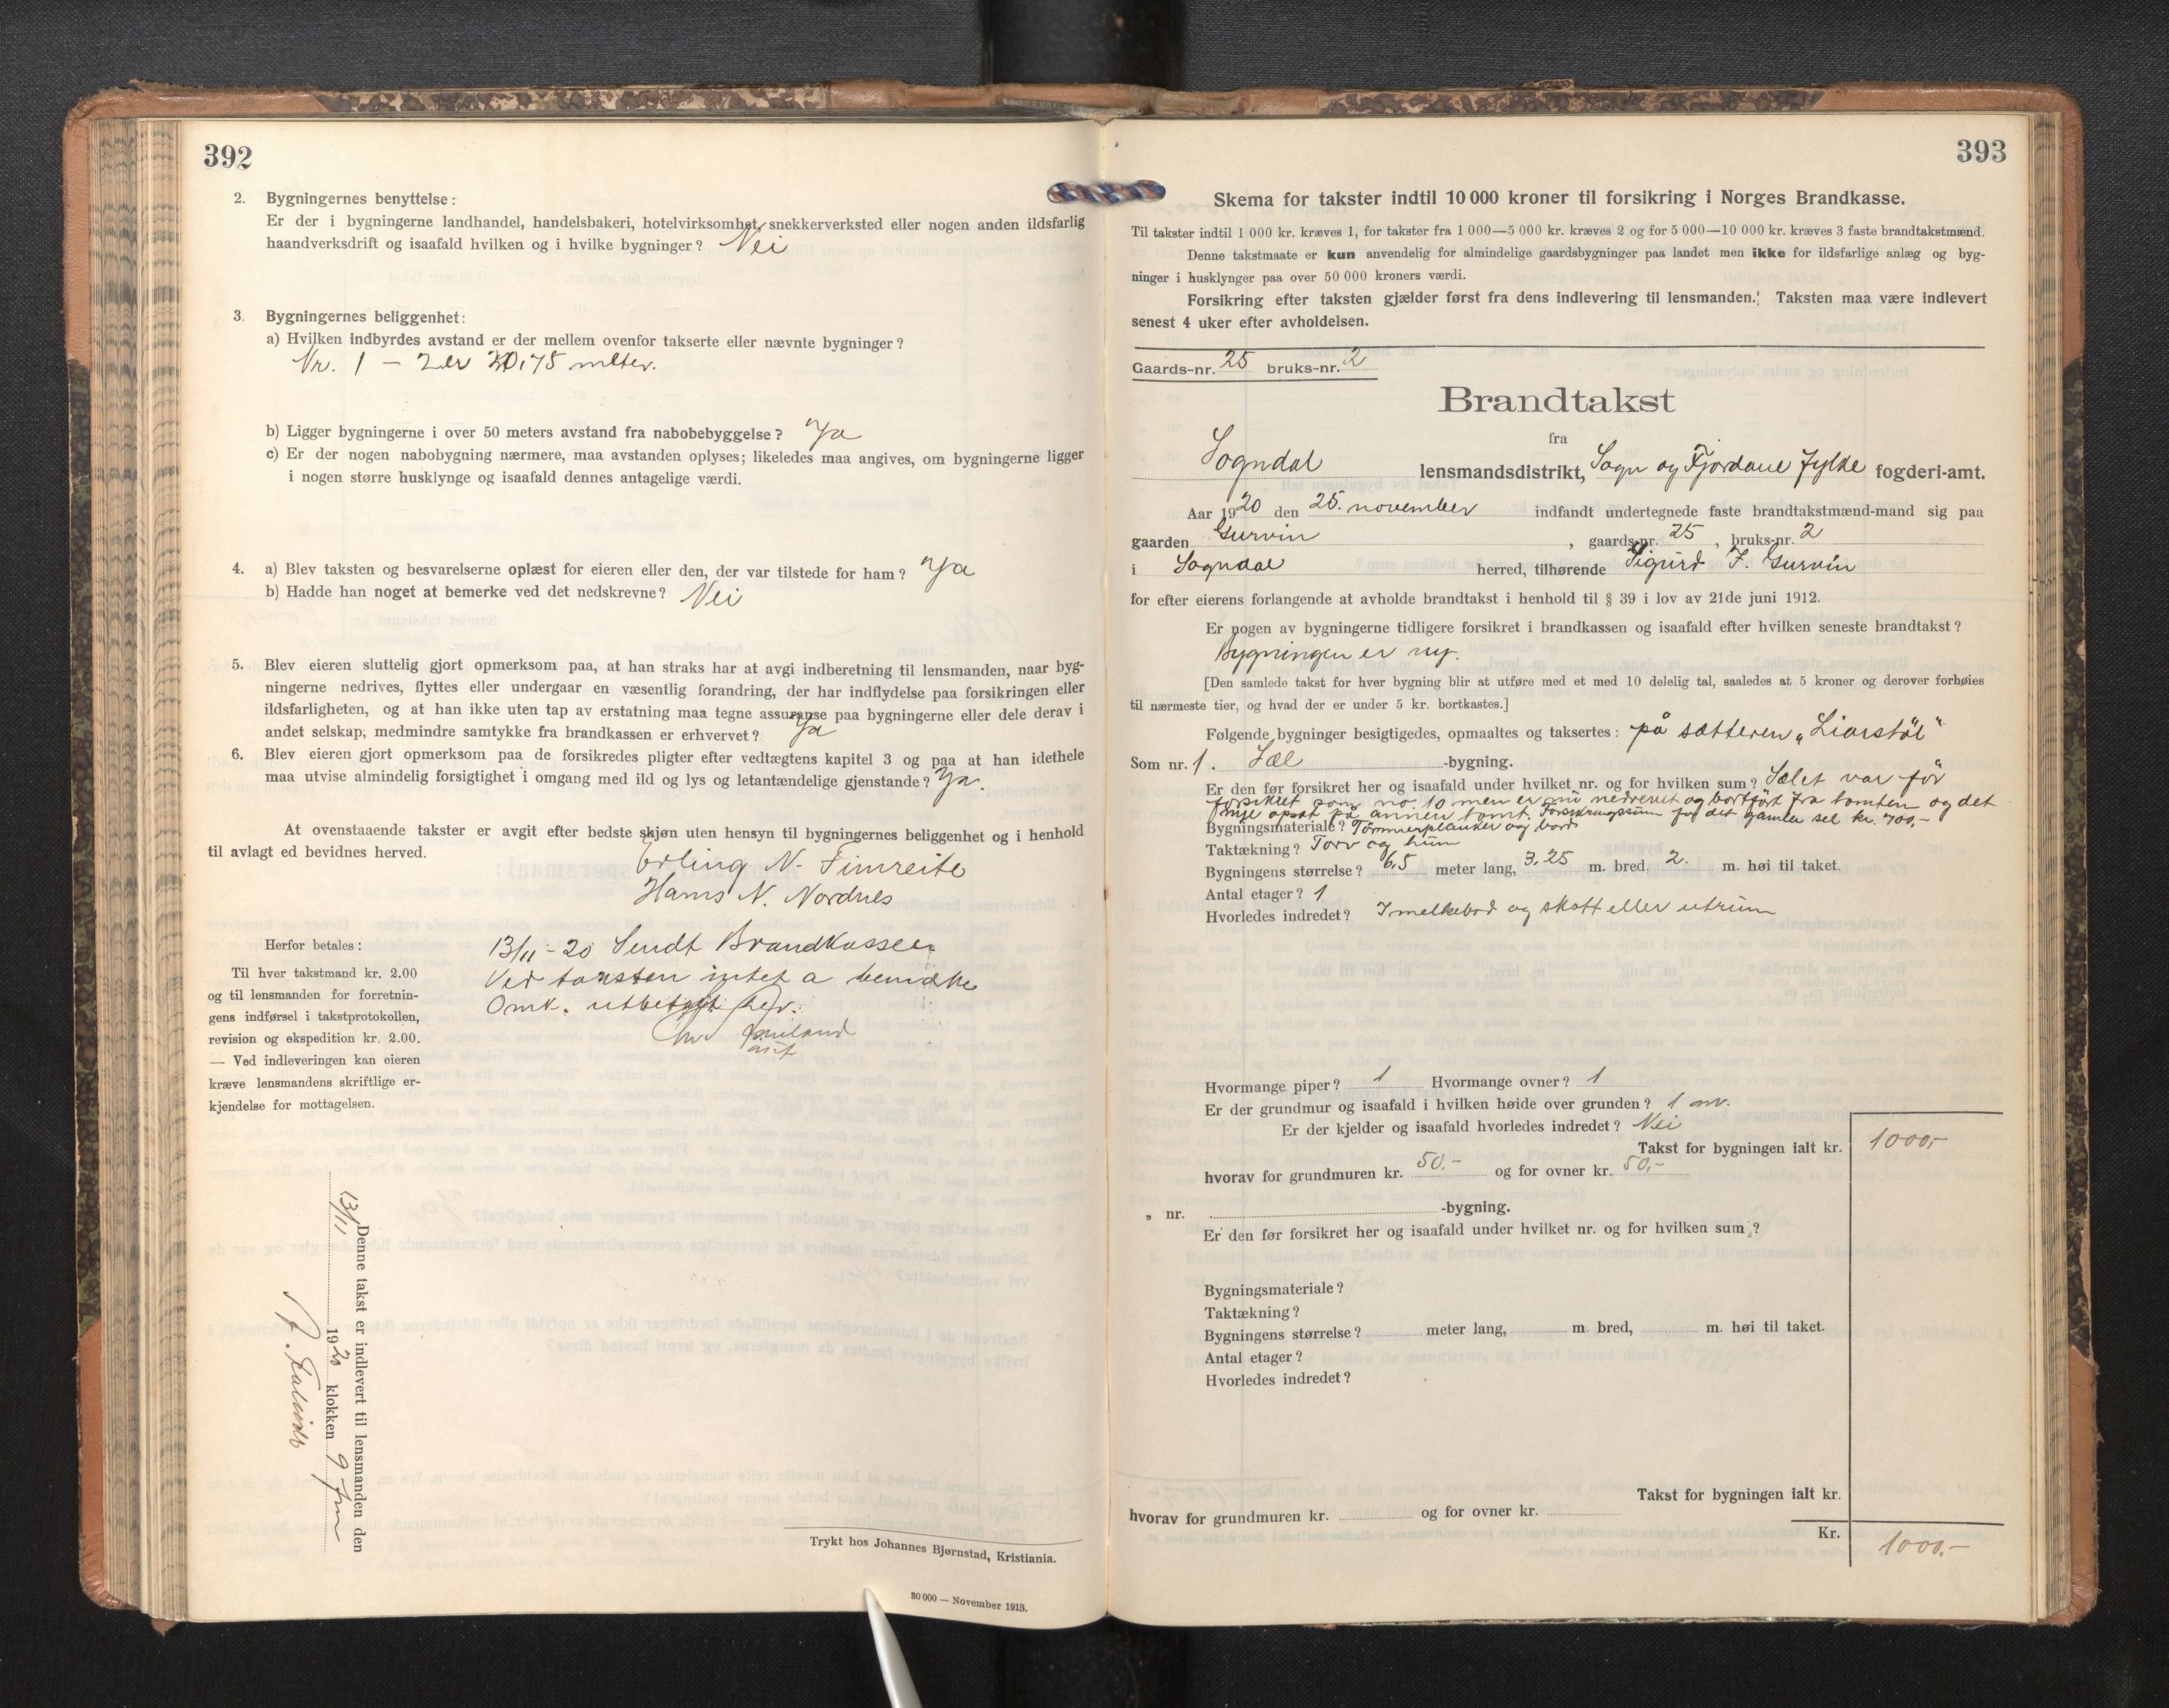 392
2. Bygningernes benyttelse:
Er der i bygningerne landhandel, handelsbakeri, hotelvirksomhet, snekkerverksted eller nogen anden ildsfarlig
haandverksdrift og isaafald hvilken og i hvilke bygninger? Nei
3. Bygningernes beliggenhet:
a) Hvilken indbyrdes avstand er der mellem ovenfor takserte eller nævnte bygninger?
Nr. 1 – 2 er 20,75 meter.
b) Ligger bygningerne i over 50 meters avstand fra nabobebyggelse? Ja
c) Er der nogen nabobygning nærmere, maa avstanden oplyses; likeledes maa angives, om bygningerne ligger
i nogen større husklynge og isaafald dennes antagelige værdi.
4. a) Blev taksten og besvarelserne oplæst for eieren eller den, der var tilstede for ham? Ja
b) Hadde han noget at bemerke ved det nedskrevne? Nei
5. Blev eieren sluttelig gjort opmerksom paa, at han straks har at avgi indberetning til lensmanden, naar byg-
ningerne nedrives, flyttes eller undergaar en væsentlig forandring, der har indflydelse paa forsikringen eller
ildsfarligheten, og at han ikke uten tap av erstatning maa tegne assuranse paa bygningerne eller dele derav i
andet selskap, medmindre samtykke fra brandkassen er erhvervet? Ja
6. Blev eieren gjort opmerksom paa de forsikredes pligter efter vedtægtens kapitel 3 og paa at han idethele
maa utvise almindelig forsigtighet i omgang med ild og lys og letantændelige gjenstande? Ja.
At ovenstaaende takster er avgit efter bedste skjøn uten hensyn til bygningernes beliggenhet og i henhold
til avlagt ed bevidnes herved.
Erling N. Fimreite
Hans N. Nordnes
Herfor betales:
Til hver takstmand kr. 2.00
og til lensmanden for forretnin-
gens indførsel i takstprotokollen,
revision og ekspedition kr. 2.00.
— Ved indleveringen kan eieren
kræve lensmandens skriftlige er-
kjendelse for mottagelsen.
13/11-20 Sendt Brandkassen.
Ved taksten intet a bemerke
Omk. utbetalt her.
Denne takst er indlevert til lensmanden den
13/11 1920 klokken 9 fm
Trykt hos Johannes Bjørnstad, Kristiania.
30 000 — November 1913.
393
Skema for takster indtil 10 000 kroner til forsikring i Norges Brandkasse.
Til takster indtil 1 000 kr. kræves 1, for takster fra 1 000—5 000 kr. kræves 2 og for 5 000—10 000 kr. kræves 3 faste brandtakstmænd.
Denne takstmaate er kun anvendelig for almindelige gaardsbygninger paa landet men ikke for ildsfarlige anlæg og byg-
ninger i husklynger paa over 50 000 kroners værdi.
Forsikring efter taksten gjælder først fra dens indlevering til lensmanden. Taksten maa være indlevert
senest 4 uker efter avholdelsen.
Gaards-nr. 25 bruks-nr. 2
Brandtakst
fra
Sogndal lensmandsdistrikt, Sogn og Fjordane fylke fogderi-amt.
Aar 1920 den 25. november indfandt undertegnede faste brandtakstmænd-mand sig paa
gaarden Gurvin, gaards-nr. 25, bruks-nr. 2
i Sogndal herred, tilhørende Sigurd J. Gurvin
for efter eierens forlangende at avholde brandtakst i henhold til § 39 i lov av 21de juni 1912.
Er nogen av bygningerne tidligere forsikret i brandkassen og isaafald efter hvilken seneste brandtakst?
Bygningen er ny.
[Den samlede takst for hver bygning blir at utføre med et med 10 delelig tal, saaledes at 5 kroner og derover forhøies
til nærmeste tier, og hvad der er under 5 kr. bortkastes.]
Følgende bygninger besigtigedes, opmaaltes og taksertes: på sætteren "Liarstöl"
Som nr. 1. Sæl -bygning.
Er den før forsikret her og isaafald under hvilket nr. og for hvilken sum? Sælet var för
forsikret som no. 10 men er nu nedrevet og bortfört fra tomten og det
nye opsat på annen tomt. Forsikringssum for det gamle sel kr. 700,-
Bygningsmateriale? Tømmerplanker og bord
Taktækning? Torv og
Bygningens størrelse? 6,5 meter lang, 3,25 m. bred, 2. m. høi til taket.
Antal etager? 1
Hvorledes indredet? I melkebod og skott eller utrum
Hvormange piper? 1 Hvormange ovner? 1
Er der grundmur og isaafald i hvilken høide over grunden? 1 m.
Er der kjelder og isaafald hvorledes indredet? Nei
Takst for bygningen ialt kr. 1000,-
hvorav for grundmuren kr. 50.- og for ovner kr. 50,-
„ nr. -bygning.
Er den før forsikret her og isaafald under hvilket nr. og for hvilken sum?
Bygningsmateriale?
Taktækning?
Bygningens størrelse? meter lang, m. bred, m. høi til taket.
Antal etager?
Hvorledes indredet?
Takst for bygningen ialt kr.
hvorav for grundmuren kr. og for ovner kr.
Kr. 1000.-